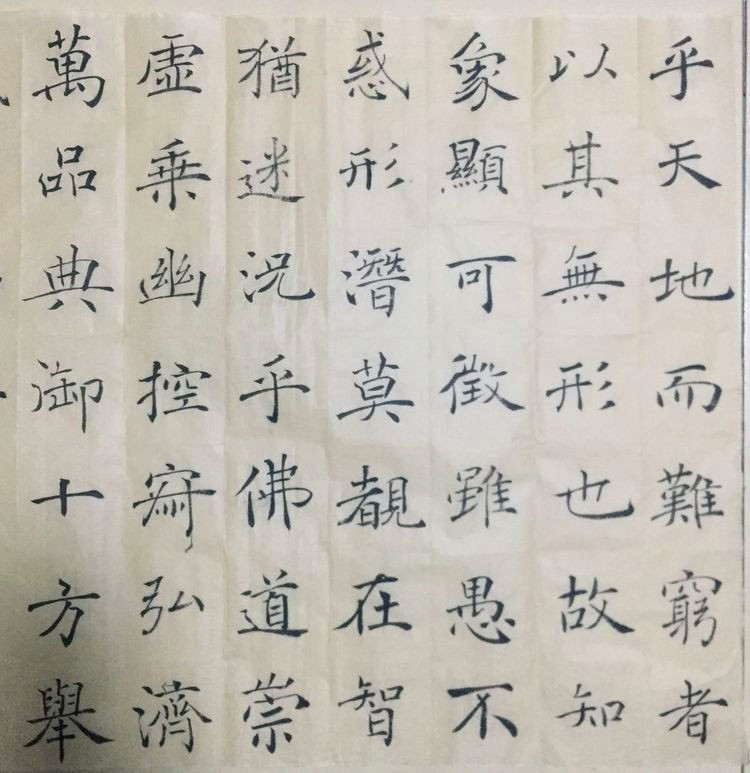 乎天地而難窮者
以其無形也故知
象顯可徵雖愚不
惑形潛莫覩在智
猶迷況乎佛道崇
虛乗幽控寂弘濟
萬品典御十方舉